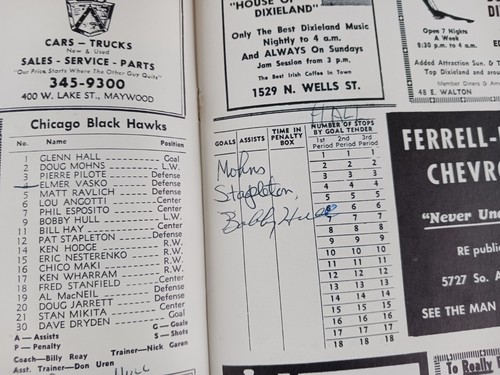 CARS - TRUCKS
New & Used
SALES - SERVICE - PARTS
"Our Price Starts Where The Other Guy Quits"
345-9300
400 W. LAKE ST., MAYWOOD
Chicago Black Hawks
No. Name Position
1 GLENN HALL Goal
2 DOUG MOHNS L.W.
3 PIERRE PILOTE Defense
4 ELMER VASKO Defense
5 MATT RAVLICH Defense
6 LOU ANGOTTI Center
7 PHIL ESPOSITO Center
9 BOBBY HULL L.W.
11 BILL HAY Center
12 PAT STAPLETON Defense
14 KEN HODGE R.W.
15 ERIC NESTERENKO R.W.
16 CHICO MAKI R.W.
17 KEN WHARRAM R.W.
18 FRED STANFIELD Center
19 AL MacNEIL Defense
20 DOUG JARRETT Defense
21 STAN MIKITA Center
30 DAVE DRYDEN Goal
A — Assists G — Goals
P — Penalty S — Shots
Coach—Billy Reay Trainer—Nick Garen
Asst. Trainer—Don Uren
Hull
"HOUSE OF
DIXIELAND"
Only The Best Dixieland Music
Nightly to 4 a.m.
And ALWAYS On Sundays
Jam Session from 3 p.m.
The Best Irish Coffee In Town
1529 N. WELLS ST.
Open 7 Nights
A Week
8:30 p.m. to 4 a.m.
Added Attraction Sun. &
Top Dixieland and
Member Diners &
48 E. WALTON
HALL
GOALS ASSISTS TIME IN PENALTY BOX
NUMBER OF STOPS
BY GOAL TENDER
1st Period 2nd Period 3rd Period
1 1 1
2 2 2
3 3 3
4 4 4
5 5 5
6 6 6
7 7 7
8 8 8
9 9 9
10 10 10
11 11 11
12 12 12
13 13 13
14 14 14
15 15 15
16 16 16
17 17 17
18 18 18
Mohns
Stapleton
Bobby Hull
FERRELL-
CHEVRO
"Never Un
RE publi
5727 So. A
SEE THE MAN
To Really